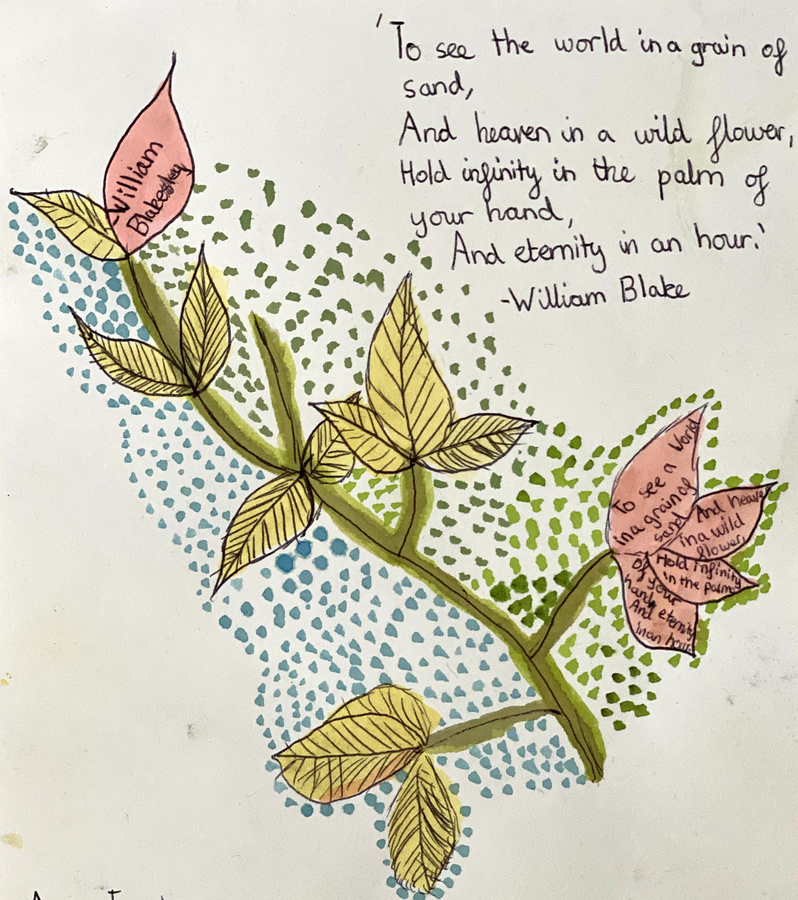 'To see the world in a grain of
sand,
And heaven in a wild flower,
Hold infinity in the palm of
your hand,
And eternity in an hour.'
-William Blake
William
To see a World
in a grain of
sand
And heaven
in a wild
flower,
Hold infinity
in the palm
of your
hand
And eternity
in an hour